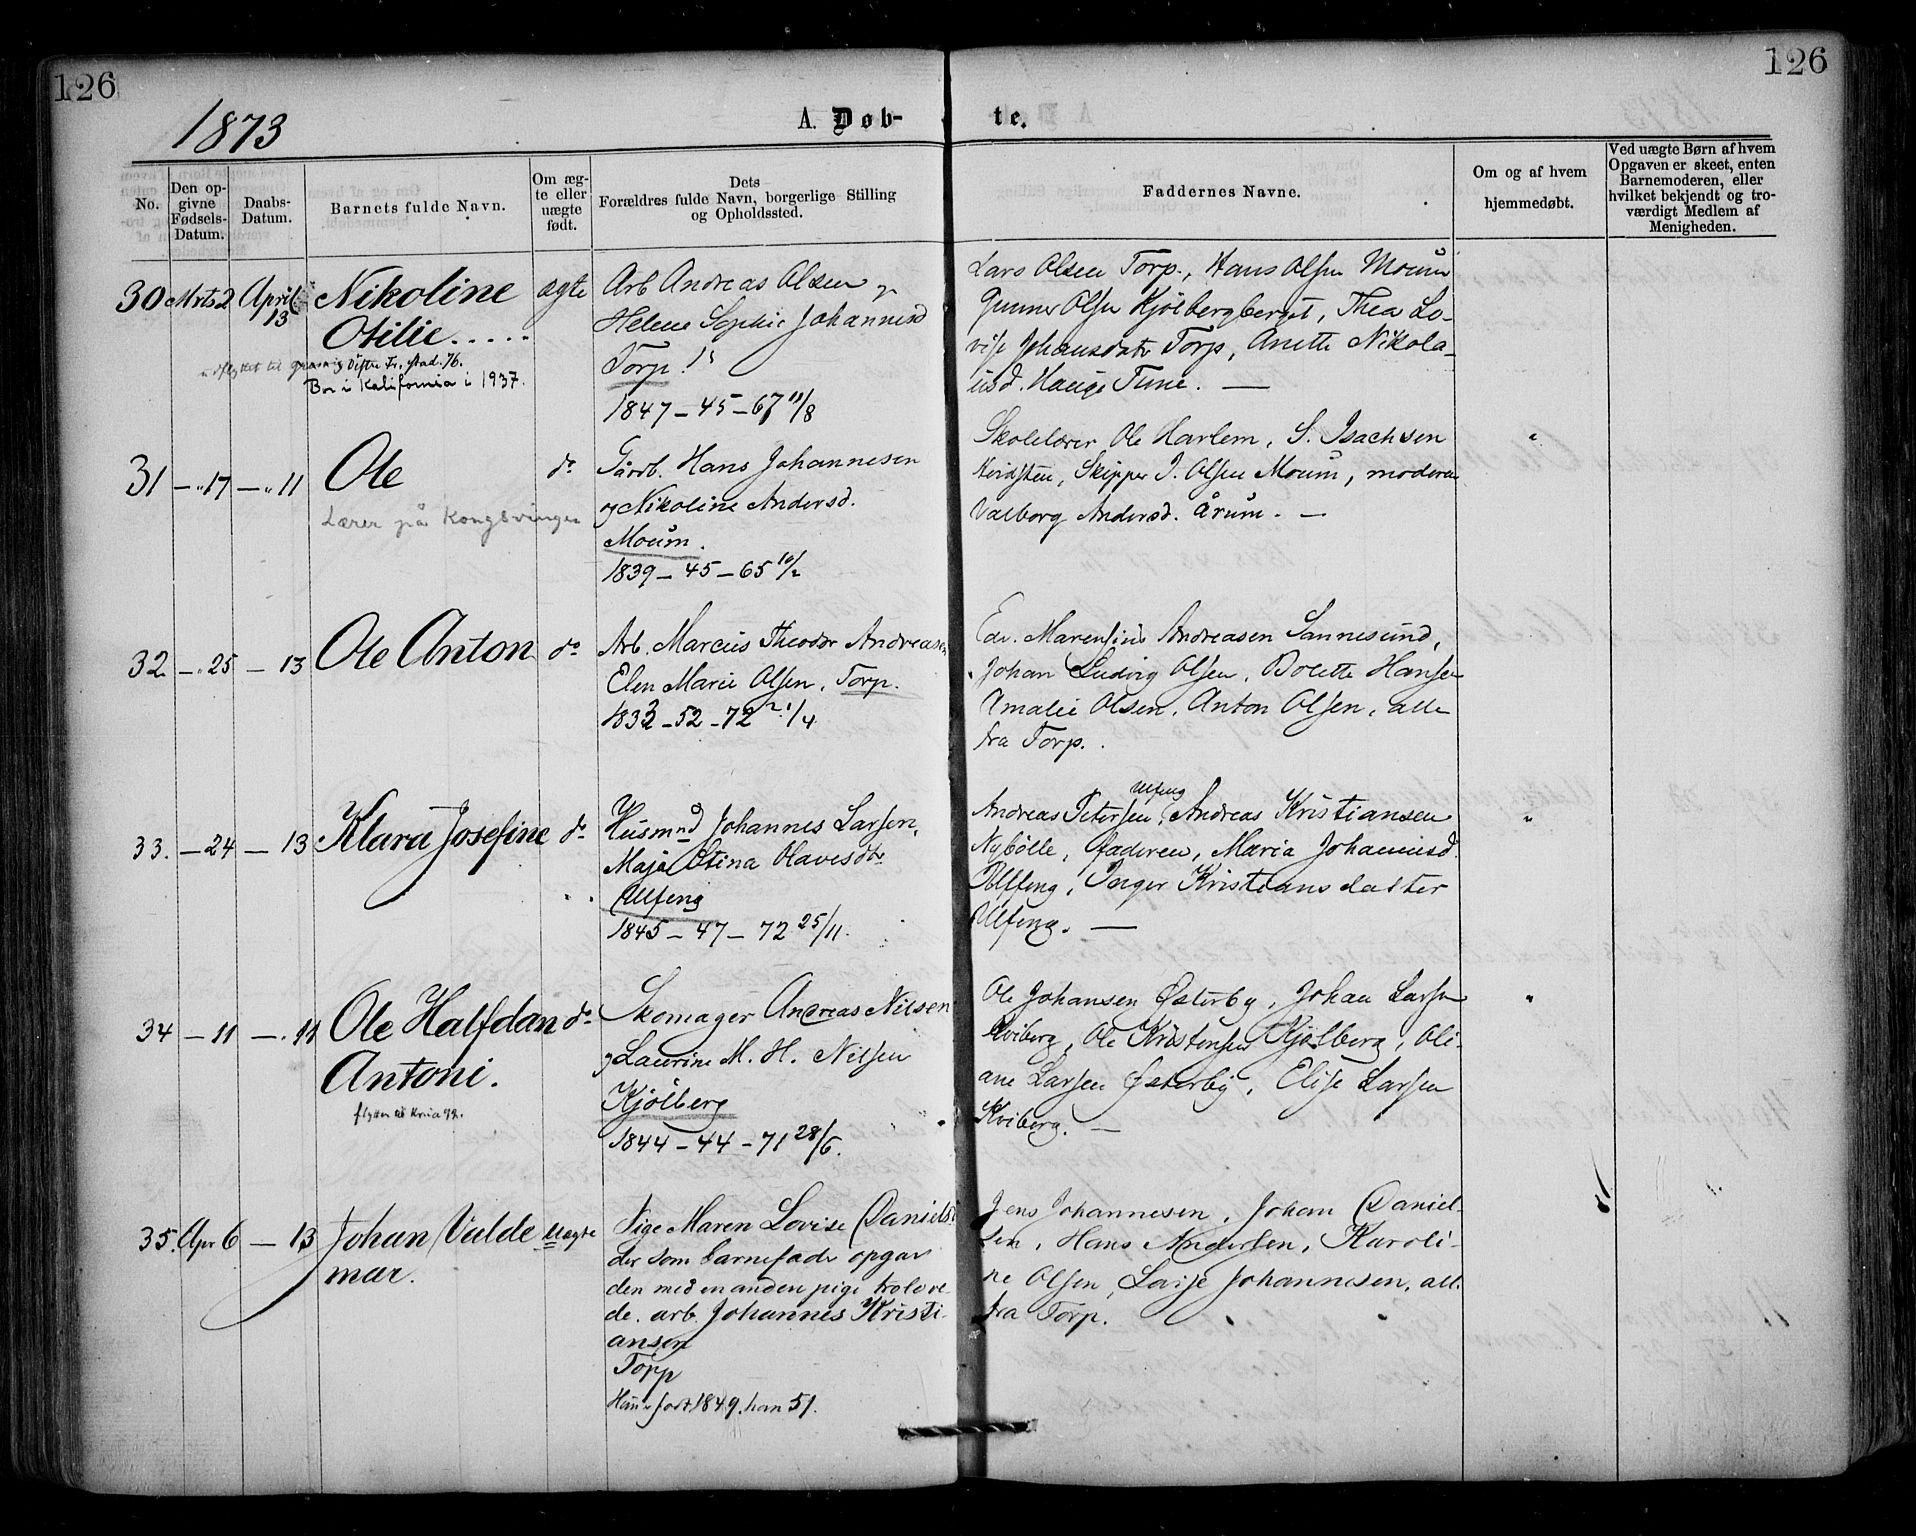 126
126
1873
A. Døb-
te.
No.
Den op-
givne
Fødsels-
Datum.
Daabs-
Datum.
Barnets fulde Navn.
Om æg-
te eller
uægte
født.
Dets
Forældres fulde Navn, borgerlige Stilling
og Opholdssted.
Faddernes Navne.
Om og af hvem
hjemmedøbt.
Ved uægte Børn af hvem
Opgaven er skeet, enten
Barnemoderen, eller
hvilket bekjendt og tro-
værdigt Medlem af
Menigheden.
30 Mrts 2 April 13 Nikoline
Otilie.....
udflyttet til
Bor i Kalifornia i 1937.
ægte
Arb Andreas Olsen og
Helene Sophie Johannesd
Torp.
1847 – 45 – 67 11/8
Lars Olsen Torp., Hans Olsen Moum
Gunner Olsen Kjølbergberget, Thea Lo-
vise Johansdatr Torp, Anette Nikola-
usd. Hauge Tune. —
31 – " 17 – " 11 Ole
Lærer på Kongsvinger
do
Gårb. Hans Johannesen
og Nikoline Andersd.
Moum.
1839 – 45 – 65 10/2
Skolelærer Ole Harlem, S. Isachsen
Skipper J. Olsen Moum, moderen
Valborg Andersd. Årum. —
"
32. – " 25 – 13 Ole Anton do
Arb. Marcus Theodor Andreasen
Elen Marie Olsen, Torp.
1833 – 52 – 72 21/4
Edv. Marensius Andreasen Sannesund,
Johan Ludvig Olsen, Bolette Hansen
Amalie Olsen, Anton Olsen, alle
fra Torp.
33. – 24 – 13 Klara Josefine do
Husmnd Johannes Larsen,
Maja Stina Olavesdtr
Ulfeng
1845 – 47 – 72 25/11.
Andreas Petersen Ulfeng, Andreas Kristiansen
Nybølle, faderen, Maria Johannesd.
Ulfeng, Inger Kristiansdatter
Ulfeng. —
"
34 – 11 – " 11 Ole Halfdan
Antoni.
flyttet til Kria 92.
do
Skomager Andreas Nilsen
og Laurine M. H. Nilsen
Kjølberg
1844 – 44 – 71 28/6.
Ole Johansen Østerby, Johan Larsen
Kviberg, Ole Kristensen Kjølberg, Oli-
ane Larsen Østerby, Elise Larsen
Kviberg. —
"
35. Apr 6 – 13 Johan Valde
mar.
Uægte
Pige Maren Lovise Danielsd
der som barnefader opgav
den med en anden pige trolove-
de. arb. Johannes Kristi-
ansen
Torp
Hun født 1849. han 51.
Jens Johannesen, Johan Daniel-
sen, Hans Andersen, Karoli-
ne Olsen, Lovise Johannesen, alle
fra Torp.